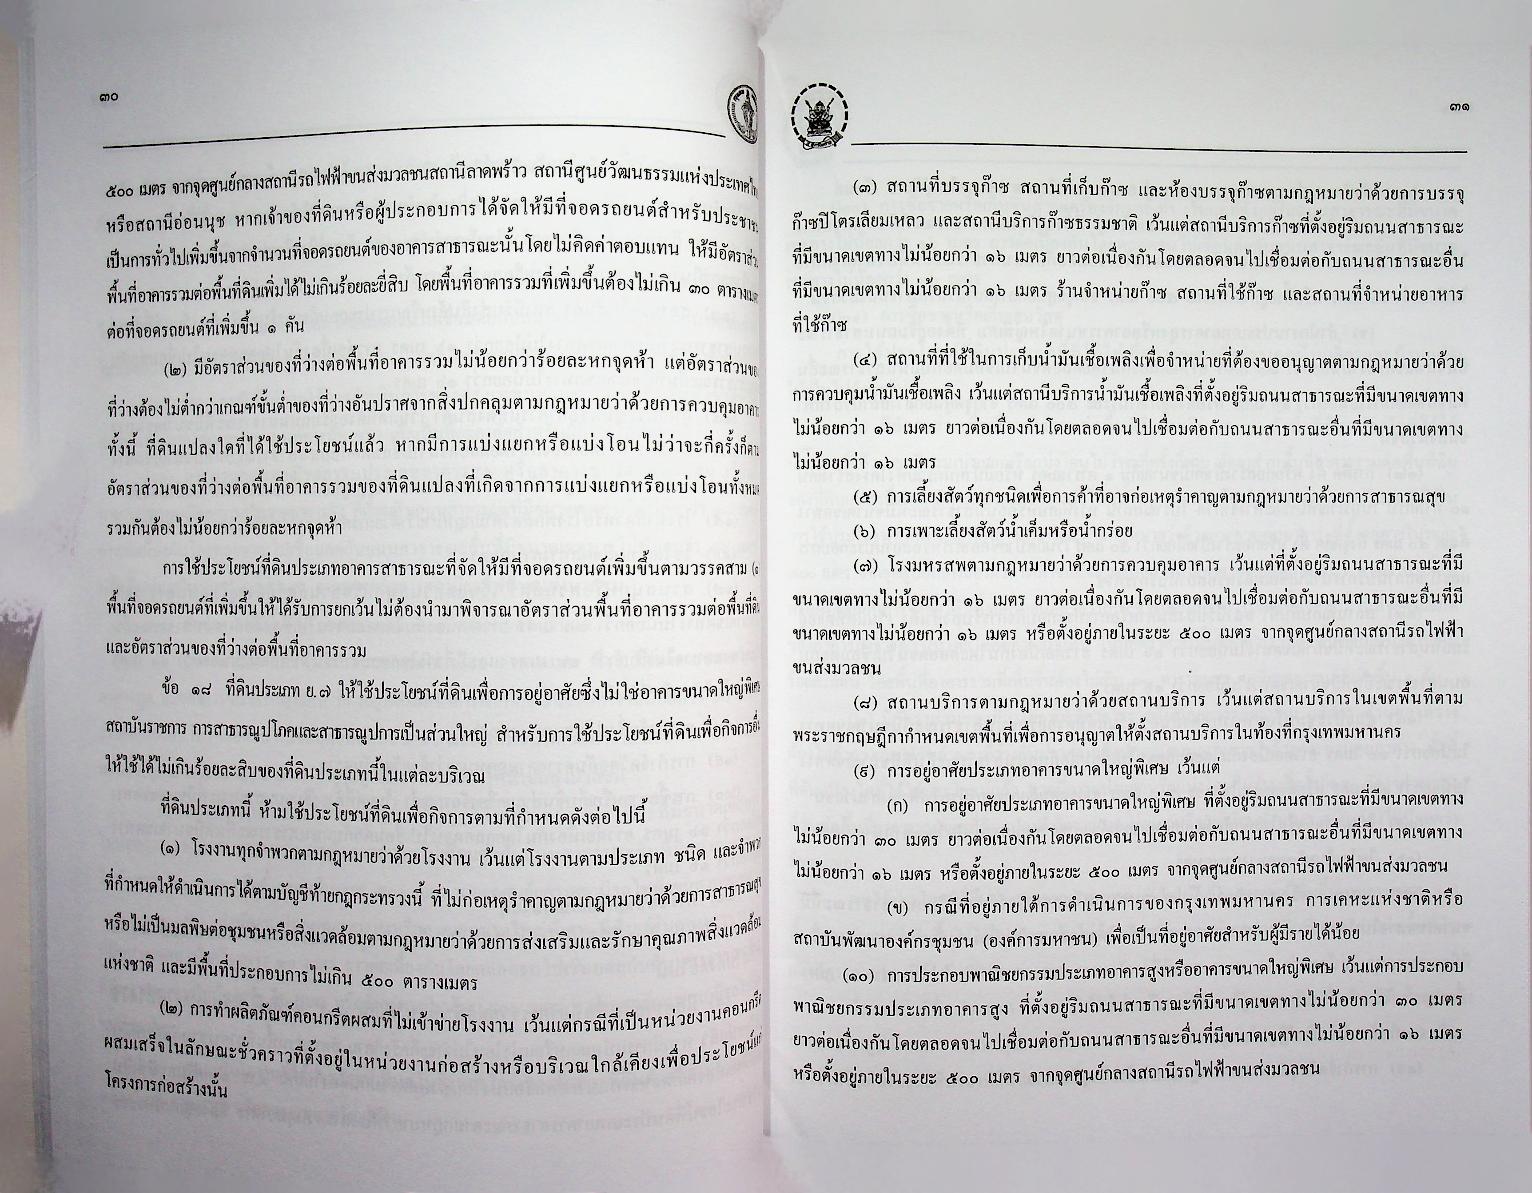 ๓๐
๕๐๐ เมตร จากจุดศูนย์กลางสถานีรถไฟฟ้าขนส่งมวลชนสถานีลาดพร้าว สถานีศูนย์วัฒนธรรมแห่งประเทศไทย
หรือสถานีอ่อนนุช หากเจ้าของที่ดินหรือผู้ประกอบการได้จัดให้มีที่จอดรถยนต์สำหรับประชาชน
เป็นการทั่วไปเพิ่มขึ้นจากจำนวนที่จอดรถยนต์ของอาคารสาธารณะนั้นโดยไม่คิดค่าตอบแทน ให้มีอัตราส่วน
พื้นที่อาคารรวมต่อพื้นที่ดินเพิ่มได้ไม่เกินร้อยละยี่สิบ โดยพื้นที่อาคารรวมที่เพิ่มขึ้นต้องไม่เกิน ๓๐ ตารางเมตร
ต่อที่จอดรถยนต์ที่เพิ่มขึ้น ๑ คัน
(๒) มีอัตราส่วนของที่ว่างต่อพื้นที่อาคารรวมไม่น้อยกว่าร้อยละหกจุดห้า แต่อัตราส่วนของ
ที่ว่างต้องไม่ต่ำกว่าเกณฑ์ขั้นต่ำของที่ว่างอันปราศจากสิ่งปกคลุมตามกฎหมายว่าด้วยการควบคุมอาคาร
ทั้งนี้ ที่ดินแปลงใดที่ได้ใช้ประโยชน์แล้ว หากมีการแบ่งแยกหรือแบ่งโอนไม่ว่าจะกี่ครั้งก็ตาม
อัตราส่วนของที่ว่างต่อพื้นที่อาคารรวมของที่ดินแปลงที่เกิดจากการแบ่งแยกหรือแบ่งโอนทั้งหมด
รวมกันต้องไม่น้อยกว่าร้อยละหกจุดห้า
การใช้ประโยชน์ที่ดินประเภทอาคารสาธารณะที่จัดให้มีที่จอดรถยนต์เพิ่มขึ้นตามวรรคสาม (๑
พื้นที่จอดรถยนต์ที่เพิ่มขึ้นให้ได้รับการยกเว้นไม่ต้องนำมาพิจารณาอัตราส่วนพื้นที่อาคารรวมต่อพื้นที่ดิน
และอัตราส่วนของที่ว่างต่อพื้นที่อาคารรวม
ข้อ ๑๘ ที่ดินประเภท ย.๗ ให้ใช้ประโยชน์ที่ดินเพื่อการอยู่อาศัยซึ่งไม่ใช่อาคารขนาดใหญ่พิเศษ
สถาบันราชการ การสาธารณูปโภคและสาธารณูปการเป็นส่วนใหญ่ สำหรับการใช้ประโยชน์ที่ดินเพื่อกิจการอื่น
ให้ใช้ได้ไม่เกินร้อยละสิบของที่ดินประเภทนี้ในแต่ละบริเวณ
ที่ดินประเภทนี้ ห้ามใช้ประโยชน์ที่ดินเพื่อกิจการตามที่กำหนดดังต่อไปนี้
(๑) โรงงานทุกจำพวกตามกฎหมายว่าด้วยโรงงาน เว้นแต่โรงงานตามประเภท ชนิด และจำพวก
ที่กำหนดให้ดำเนินการได้ตามบัญชีท้ายกฎกระทรวงนี้ ที่ไม่ก่อเหตุรำคาญตามกฎหมายว่าด้วยการสาธารณสุข
หรือไม่เป็นมลพิษต่อชุมชนหรือสิ่งแวดล้อมตามกฎหมายว่าด้วยการส่งเสริมและรักษาคุณภาพสิ่งแวดล้อม
แห่งชาติ และมีพื้นที่ประกอบการไม่เกิน ๕๐๐ ตารางเมตร
(๒) การทำผลิตภัณฑ์คอนกรีตผสมที่ไม่เข้าข่ายโรงงาน เว้นแต่กรณีที่เป็นหน่วยงานคอนกรีต
ผสมเสร็จในลักษณะชั่วคราวที่ตั้งอยู่ในหน่วยงานก่อสร้างหรือบริเวณใกล้เคียงเพื่อประโยชน์แก่
โครงการก่อสร้างนั้น
๓๑
(๓) สถานที่บรรจุก๊าซ สถานที่เก็บก๊าซ และห้องบรรจุก๊าซตามกฎหมายว่าด้วยการบรรจุ
ก๊าซปิโตรเลียมเหลว และสถานีบริการก๊าซธรรมชาติ เว้นแต่สถานีบริการก๊าซที่ตั้งอยู่ริมถนนสาธารณะ
ที่มีขนาดเขตทางไม่น้อยกว่า ๑๖ เมตร ยาวต่อเนื่องกันโดยตลอดจนไปเชื่อมต่อกับถนนสาธารณะอื่น
ที่มีขนาดเขตทางไม่น้อยกว่า ๑๖ เมตร ร้านจำหน่ายก๊าซ สถานที่ใช้ก๊าซ และสถานที่จำหน่ายอาหาร
ที่ใช้ก๊าซ
(๔) สถานที่ที่ใช้ในการเก็บน้ำมันเชื้อเพลิงเพื่อจำหน่ายที่ต้องขออนุญาตตามกฎหมายว่าด้วย
การควบคุมน้ำมันเชื้อเพลิง เว้นแต่สถานีบริการน้ำมันเชื้อเพลิงที่ตั้งอยู่ริมถนนสาธารณะที่มีขนาดเขตทาง
ไม่น้อยกว่า ๑๖ เมตร ยาวต่อเนื่องกันโดยตลอดจนไปเชื่อมต่อกับถนนสาธารณะอื่นที่มีขนาดเขตทาง
ไม่น้อยกว่า ๑๖ เมตร
(๕) การเลี้ยงสัตว์ทุกชนิดเพื่อการค้าที่อาจก่อเหตุรำคาญตามกฎหมายว่าด้วยการสาธารณสุข
(๖) การเพาะเลี้ยงสัตว์น้ำเค็มหรือน้ำกร่อย
(๗) โรงมหรสพตามกฎหมายว่าด้วยการควบคุมอาคาร เว้นแต่ที่ตั้งอยู่ริมถนนสาธารณะที่มี
ขนาดเขตทางไม่น้อยกว่า ๑๖ เมตร ยาวต่อเนื่องกันโดยตลอดจนไปเชื่อมต่อกับถนนสาธารณะอื่นที่มี
ขนาดเขตทางไม่น้อยกว่า ๑๖ เมตร หรือตั้งอยู่ภายในระยะ ๕๐๐ เมตร จากจุดศูนย์กลางสถานีรถไฟฟ้า
ขนส่งมวลชน
(๘) สถานบริการตามกฎหมายว่าด้วยสถานบริการ เว้นแต่สถานบริการในเขตพื้นที่ตาม
พระราชกฤษฎีกากำหนดเขตพื้นที่เพื่อการอนุญาตให้ตั้งสถานบริการในท้องที่กรุงเทพมหานคร
(๙) การอยู่อาศัยประเภทอาคารขนาดใหญ่พิเศษ เว้นแต่
(ก) การอยู่อาศัยประเภทอาคารขนาดใหญ่พิเศษ ที่ตั้งอยู่ริมถนนสาธารณะที่มีขนาดเขตทาง
ไม่น้อยกว่า ๓๐ เมตร ยาวต่อเนื่องกันโดยตลอดจนไปเชื่อมต่อกับถนนสาธารณะอื่นที่มีขนาดเขตทาง
ไม่น้อยกว่า ๑๖ เมตร หรือตั้งอยู่ภายในระยะ ๕๐๐ เมตร จากจุดศูนย์กลางสถานีรถไฟฟ้าขนส่งมวลชน
(ข) กรณีที่อยู่ภายใต้การดำเนินการของกรุงเทพมหานคร การเคหะแห่งชาติหรือ
สถาบันพัฒนาองค์กรชุมชน (องค์การมหาชน) เพื่อเป็นที่อยู่อาศัยสำหรับผู้มีรายได้น้อย
(๑๐) การประกอบพาณิชยกรรมประเภทอาคารสูงหรืออาคารขนาดใหญ่พิเศษ เว้นแต่การประกอบ
พาณิชยกรรมประเภทอาคารสูง ที่ตั้งอยู่ริมถนนสาธารณะที่มีขนาดเขตทางไม่น้อยกว่า ๓๐ เมตร
ยาวต่อเนื่องกันโดยตลอดจนไปเชื่อมต่อกับถนนสาธารณะอื่นที่มีขนาดเขตทางไม่น้อยกว่า ๑๖ เมตร
หรือตั้งอยู่ภายในระยะ ๕๐๐ เมตร จากจุดศูนย์กลางสถานีรถไฟฟ้าขนส่งมวลชน